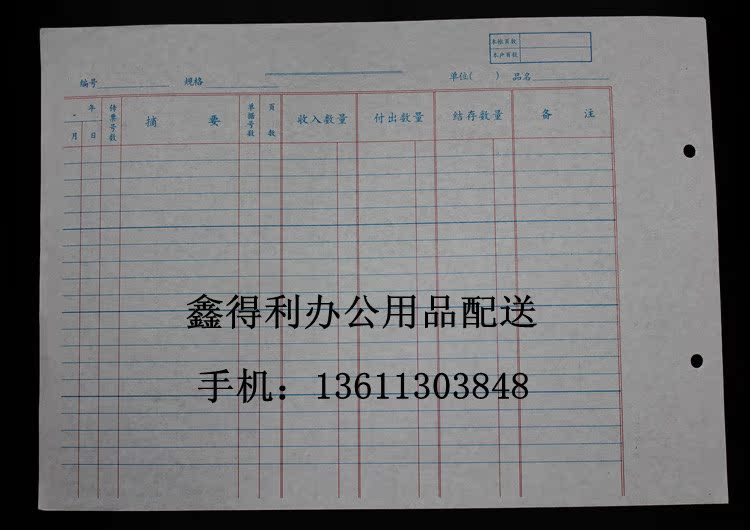 本帐页数
本户页数
编号 规格 单位( ) 品名
年 月 日 传票号数 摘 要 单据号数 页数 收入数量 付出数量 结存数量 备 注
鑫得利办公用品配送
手机：13611303848